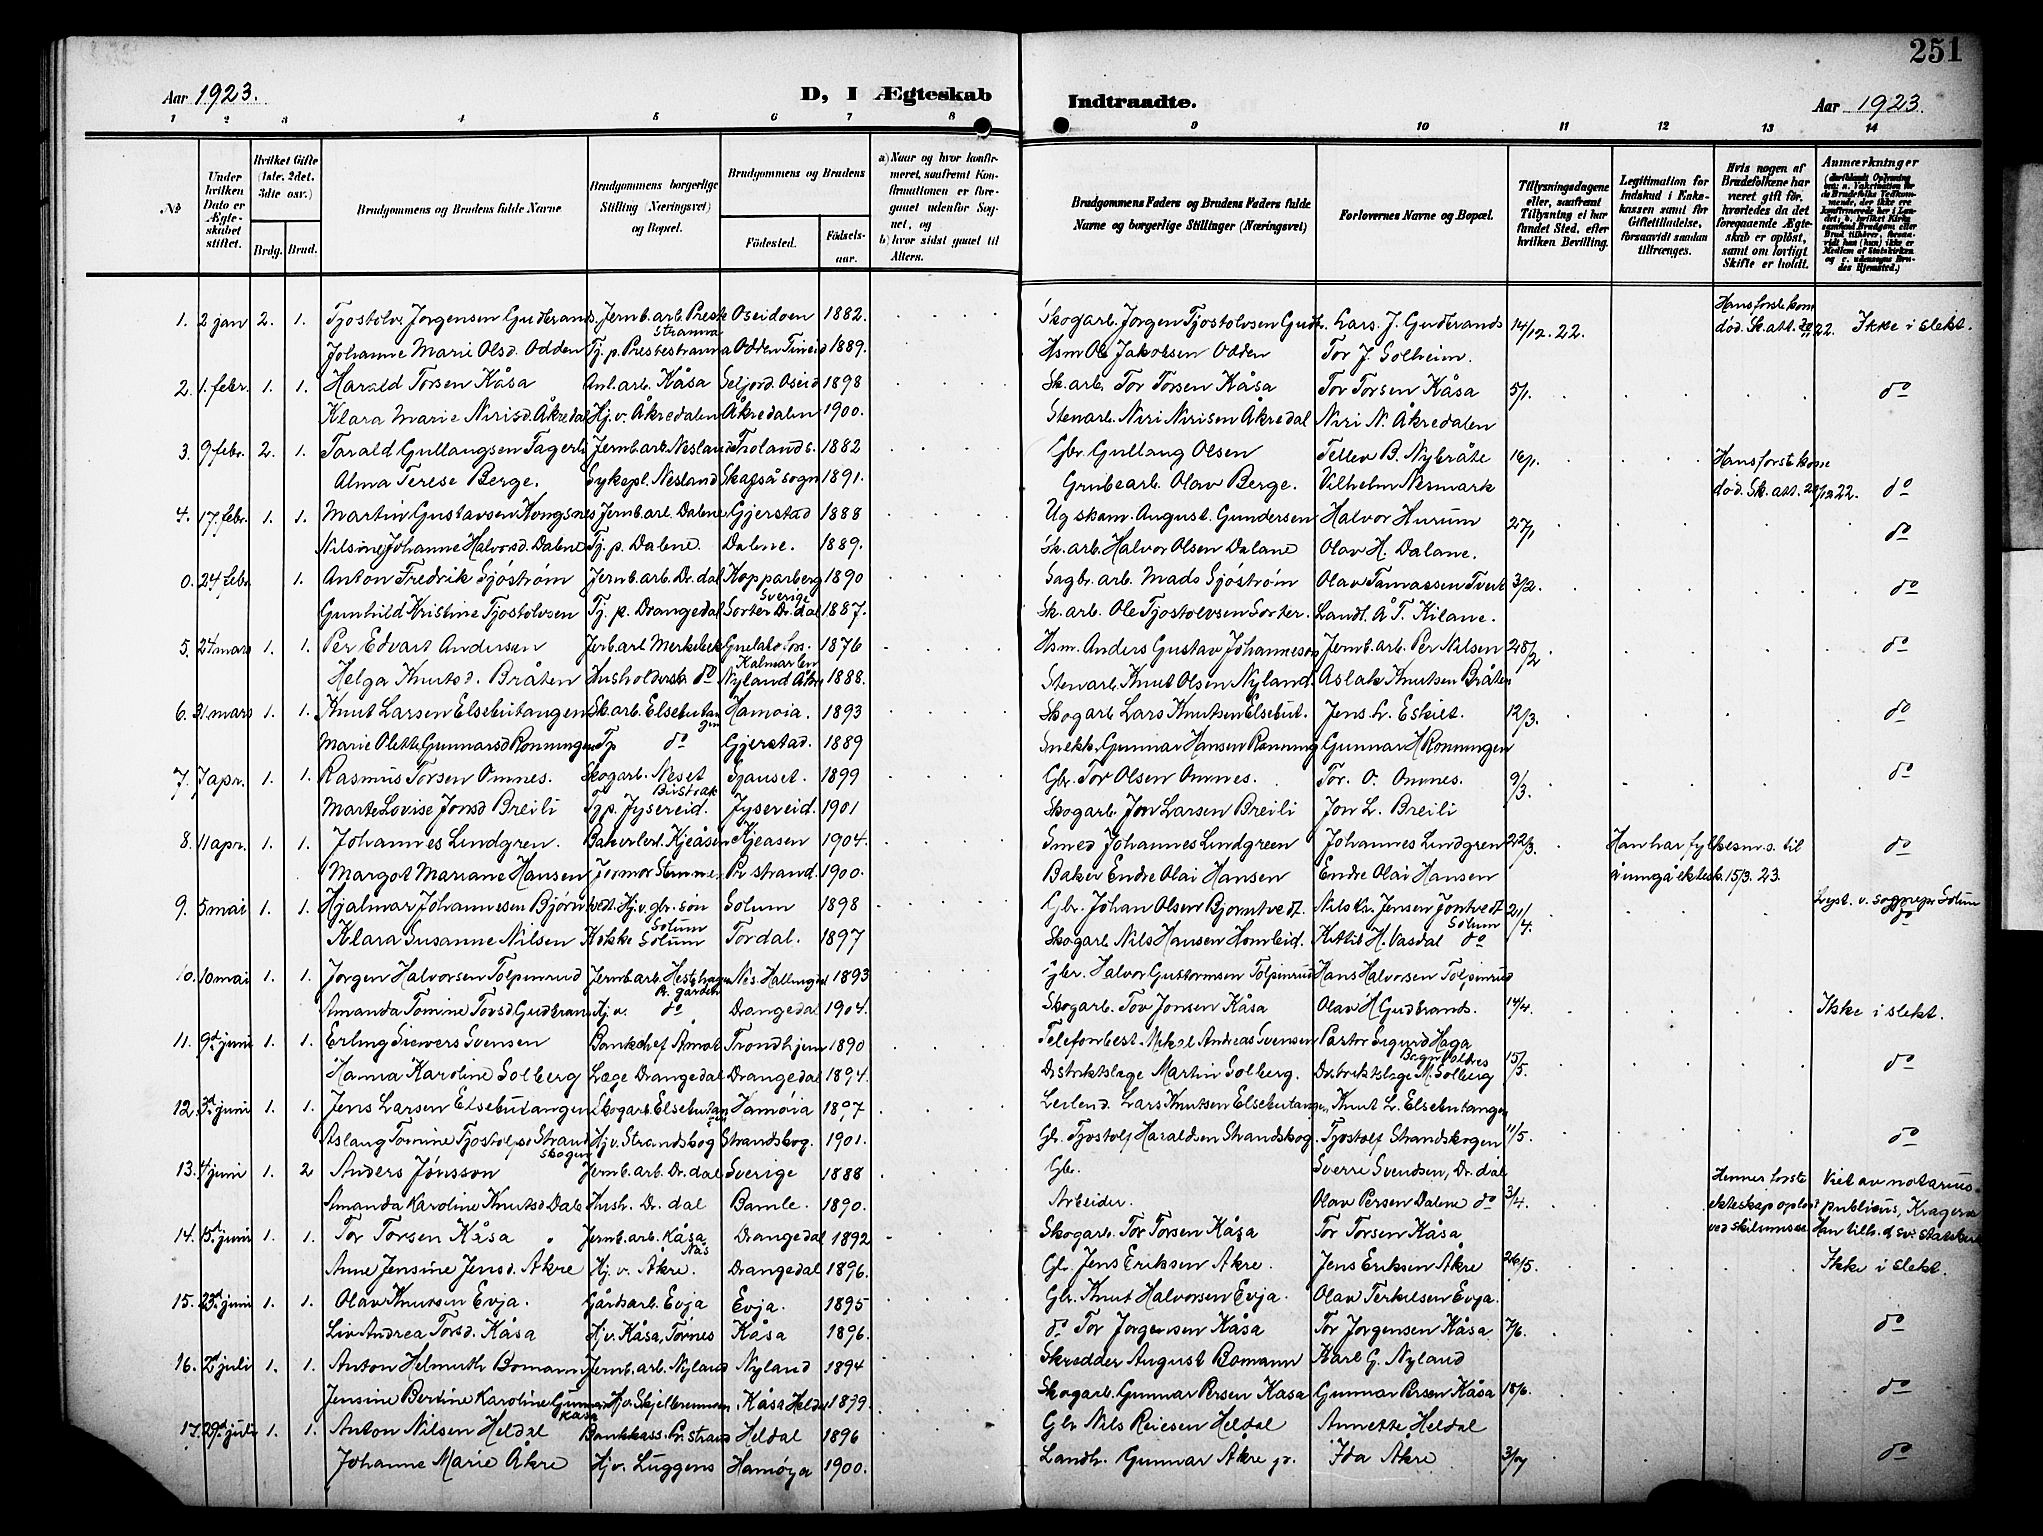 251
Aar 1923. D, I Ægteskab Indtraadte. Aar 1923.
1 2 3 4 5 6 7 8 9 10 11 12 13 14
No
Under hvilken Dato er Ægteskabet stiftet.
Hvilket Gifte (1ste, 2det, 3die osv.)
Brdg. Brud.
Brudgommens og Brudens fulde Navne.
Brudgommens borgerlige Stilling (Næringsvei) og Bopæl.
Brudgommens og Brudens
Födested. Födsels-aar.
a) Naar og hvor konfirmeret, saafremt Konfirmationen er foregaaet udenfor Sognet, og
b) hvor sidst gaaet til Alters.
Brudgommens Faders og Brudens Faders fulde Navne og borgerlige Stillinger (Næringsvei)
Forlovernes Navne og Bopæl.
Tillysningsdagene eller, saafremt Tillysning ei har fundet Sted, efter hvilken Bevilling.
Legitimation for Indskud i Enkekassen samt for Giftetilladelse, forsaavidt saadan tiltrænges.
Hvis nogen af Brudefolkene har været gift før, hvorledes da det foregaaende Ægteskab er oplöst, samt om lovligt Skifte er holdt.
Anmærkninger
1. 2 jan 2. 1. Tjostolv Jørgensen Gudbrands. Jernb.arb. Prestestranna Oseidoen 1882. Skogarb. Jørgen Tjostolvsen Gudb. Lars J. Gudbrands 14/12.22. Hans første kone død. Sk.att. 22. Ikke i slekt.
Johanne Marie Olsd. Odden Tj. p. Prestestranna Odden 1889. Hsm. Ole Jakobsen Odden Tor J. Solheim.
2. 1. febr. 1. 1. Harald Torsen Kåsa Anl.arb. Kåsa Seljord. Oseid 1898 Sk.arb. Tor Torsen Kåsa Tor Torsen Kåsa 5/1. do
Klara Marie Nirisd. Åkredal Hj. v. Åkredalen Åkredalen 1900. Stenarb. Niri Nirisen Åkredal Niri N. Åkredalen
3. 9 febr. 2. 1. Tarald Gullaugsen Fagerli Jernb.arb. Nesland 1882 Gbr. Gullaug Olsen Tellev B. Nybråte 16/1 Hans første kone
Alma Terese Berge. Sykepl. Nesland Skafså sogn 1891. Grubearb. Olav Berge. Vilhelm Nesmark død. Sk.att. 22. do
4. 17. febr. 1. 1. Martin Gustavsen Kongsnes Jernb.arb. Dalene Gjerstad 1888 August Gundersen Halvor Hurum 27/1 do
Nilsine Johanne Halvorsd. Dalene Tj. p. Dalene. Dalene. 1889. Sk.arb. Halvor Olsen Dalane Olav H. Dalane.
0. 24 febr. 1. Anton Fredrik Sjöström Jernb.arb. Dr.dal Kopparberg Sverige 1890 Sagbr.arb. Mads Sjöström Olav Tarraldsen Tveit 3/2. do
Gunhild Kristine Tjostolvsen Tj. p. Drangedal Sorter Dr.dal 1887. Sk.arb. Ole Tjostolvsen Sorter. Landh. A T. Kilane.
5. 24 mars 1. 1. Per Edvart Andersen Jerb.arb Merkebek Kalmarlen 1876 Hsm. Anders Gustav Johannesson Jernb.arb. Per Nilsen 28/2 do
Helga Knutsd. Bråten Husholdersk do Nyland 1888. Stenarb. Knut Olsen Nyland. Aslak Knutsen Bråten
6. 31 mars 1. 1. Knut Larsen Elsebutangen Sk.arb. Elsebutangen Hamoia. 1893 Skogarb Lars Knutsen Elsebut. Jens L. Eskilt. 12/3. do
Marie Olette Gunnarsd Rønningen Tj. do Gjerstad. 1889 Snekk. Gunnar Hansen Rønning Gunnar H Rønningen
7. 7 apr. 1. 1. Rasmus Torsen Omnes. Skogarb. Neset Gauset. 1899 Gbr. Tor Olsen Omnes. Tor. O. Omnes. 9/3. do
Marte Lovise Jonsd Breili Tj p. Jysereid. Jysereid. 1901 Skogarb. Jon Larsen Breili Jon L. Breili
8. 11 apr. 1. 1. Johannes Lindgren. Bakerlærl. Kjeåsen Kjeasen 1904. Smed Johannes Lindgreen Johannes Lindgren 22/3. Han har fylkesm.s. til do
Margot Mariane Hansen Jormor Pr.strand. 1900. Baker Endre Olai Hansen Endre Olai Hansen å inngå ektesk. 15/3. 23.
9. 5 mai 1. 1. Hjalmar Johannesen Bjørntvedt. Hj.v. gbr. søn Solum Solum 1898 Gbr. Johan Olsen Bjørntvedt. Nils Kr. Jensen Jøntvedt Solum 21/4. Lyst. v. sogpr. Solum do
Klara Susanne Nilsen Kokke Solum Tordal. 1897 Skogarb. Nils Hansen Homleid. Kittil H. Vasdal do
10. 10 mai 1. 1. Jørgen Halvorsen Tolpinrud Jernb.arb. Hestehagen Pr.gården Nes. Hallingdal 1893 Gbr. Halvor Guttormsen Tolpinrud Hans Halvorsen Tolpinrud
Amanda Tomine Torsd Gudbran Hj. v. do Drangedal 1904. Skogarb. Tov Jonsen Kåsa Olav H Gudbrands. 14/4. Ikke i slekt.
11. 9d juni 1. 1. Erling Siewers Svensen Bankchef Åmot Trondhjem 1890 Telefonbest. Mikal Andreas Svensen Pastor Sigurd Haga 15/5. do
Hanna Karoline Solberg Læge Drangedal Drangedal 1894. Distriktslæge Martin Solberg. Distriktslæge M. Solberg
12. 3d juni 1. 1. Jens Larsen Elsebutangen Skogarb. Elsebutangen Hamøia 1897 Leilend. Lars Knutsen Elsebutangen, Knut L. Elsebutangen
Aslaug Tomine Tjostolfsd Strandskogen Hj v. Strandskog Strandskog. 1901. Gbr. Tjostolf Haraldsen Strandskog. Tjostolf Strandskogen 11/5. do
13. 4 juni 1. 2 Anders Jönsson Jernb.arb. Dr.dal Sverige 1888 Gbr. Sverre Svendsen, Dr.dal Hennes første Viet av notarius
Amanda Karoline Knutsd Dale Hush. Dr.dal Bamle. 1890. Arbeider. Olav Persen Dalene do 3/4. ekteskap opløst publicus, Kragerø
14. 15d juni 1. 1. Tor Torsen Kåsa Jernb.arb. Kåsa Nås Drangedal 1892 Skogarb. Tor Torsen Kåsa Tor Torsen Kåsa ved skilsmisse Han tilh. d. sv. statskirk
Anne Jensine Jensd. Åkre Hj. v. Åkre. Drangedal 1896. Gbr. Jens Eriksen Akre. Jens Eriksen Akre 26/5. Ikke i slekt.
15. 23d juni 1. 1. Olav Knutsen Evja. Gårdsarb. Evja Evja. 1895 Gbr. Knut Halvorsen Evja. Olav Terkelsen Evja.
Liv Andrea Torsd. Kåsa Hj v. Kåsa, Tørnes Kåsa 1896. do Tor Jørgensen Kåsa Tor Jørgensen Kåsa 7/6. do
16. 2d juli 1. 1. Anton Helmuth Bomann Jernb.arb. Nyland Nyland 1894 Skredder August Bomann Karl G. Nyland
Jensine Bertine Karoline Gunnarsd Kåsa Hj.v. Kåsa Heldal 1899. Skogarb. Gunnar Persen Kåsa Gunnar Persen Kåsa 18/6. do
17. 29d juli 1. 1. Anton Nilsen Heldal Bankkass. Pr.strand Heldal 1896 Gbr Nils Reiersen Heldal Annette Heldal
Johanne Marie Åkre Hj v. Luggens Hamøya 1900. Landh. Gunnar Åkre jr. Ida Åkre 3/7 do